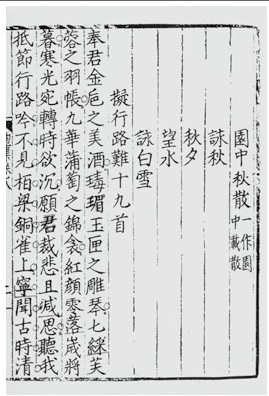 園中秋散一作園中載散
詠秋
秋夕
望水
詠白雪
擬行路難十九首
奉君金巵之美酒瑇瑁玉匣之雕琴七綵芙
蓉之羽帳九華蒲萄之錦衾紅顔零落歲將
暮寒光宛轉時欲沉願君裁悲且减思聽我
抵節行路吟不見柏梁銅雀上寧聞古時清